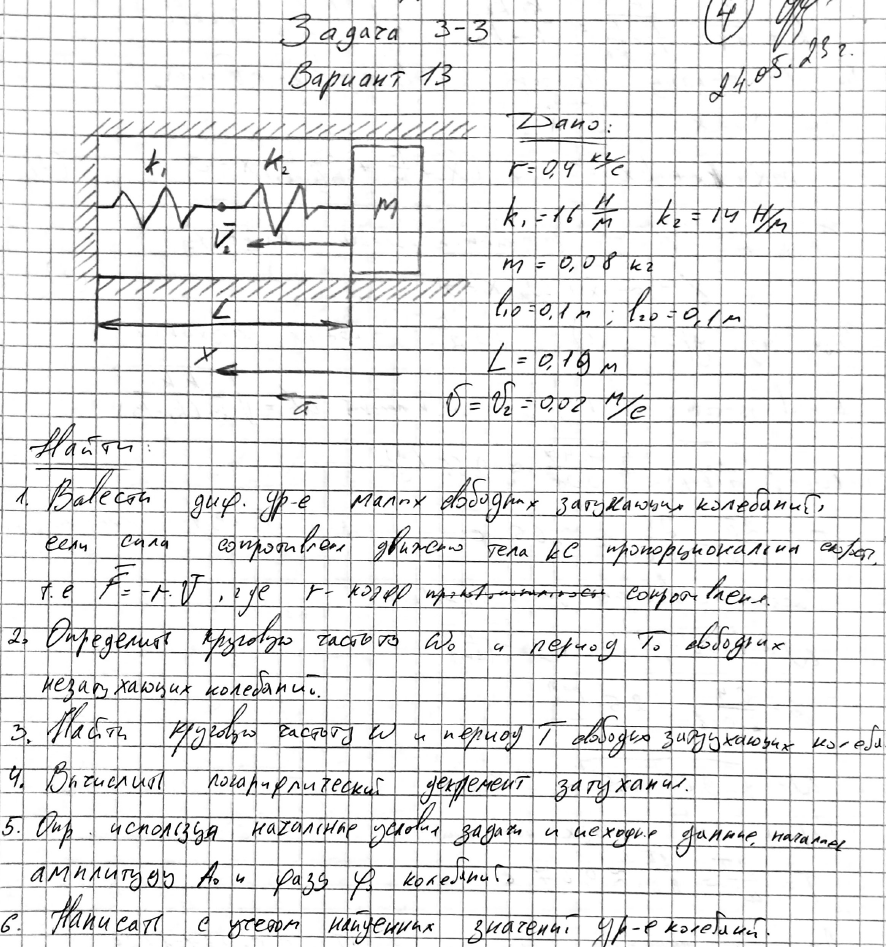 Задача 3-3
4
24.05.23г.
Вариант 13
Дано:
k₁
k₂
m
V̄₂
L
X
ā
r = 0,4 кг/с
k₁ = 16 Н/м k₂ = 14 Н/м
m = 0,08 кг
l₁₀ = 0,1 м ; l₂₀ = 0,1 м
L = 0,19 м
V = V₂ = 0,02 м/с
Найти:
1. Вывести диф. ур-е малых свободных затухающих колебаний,
если сила сопротивлен движению тела пропорциональна скорости,
т.е F̄ = -r·V̄, где r - коэфф сопротивления.
2. Определить круговую частоту ω₀ и период T₀ свободных
незатухающих колебаний.
3. Найти круговую частоту ω и период T свободно затухающих колеба
4. Вычислить логарифмический декремент затухания.
5. Опр. используя начальные условия задачи и исходные данные, начальные
амплитуду A₀ и фазу φ₀ колебаний.
6. Написать с учетом найденных значений ур-е колебаний.